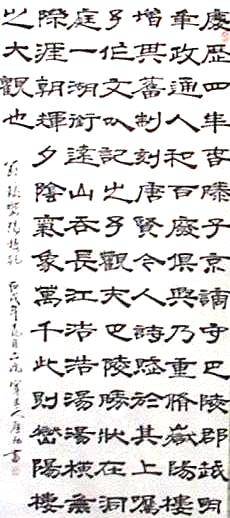 慶歷四年春滕子京謫守巴陵郡越明
年政通人和百廢俱興乃重脩嶽陽樓
增其舊制刻唐賢今人詩賦於其上屬
予作文以記之予觀夫巴陵勝狀在洞
庭一湖銜遠山吞長江浩浩湯湯橫無
際涯朝暉夕陰氣象萬千此則嶽陽樓
之大觀也